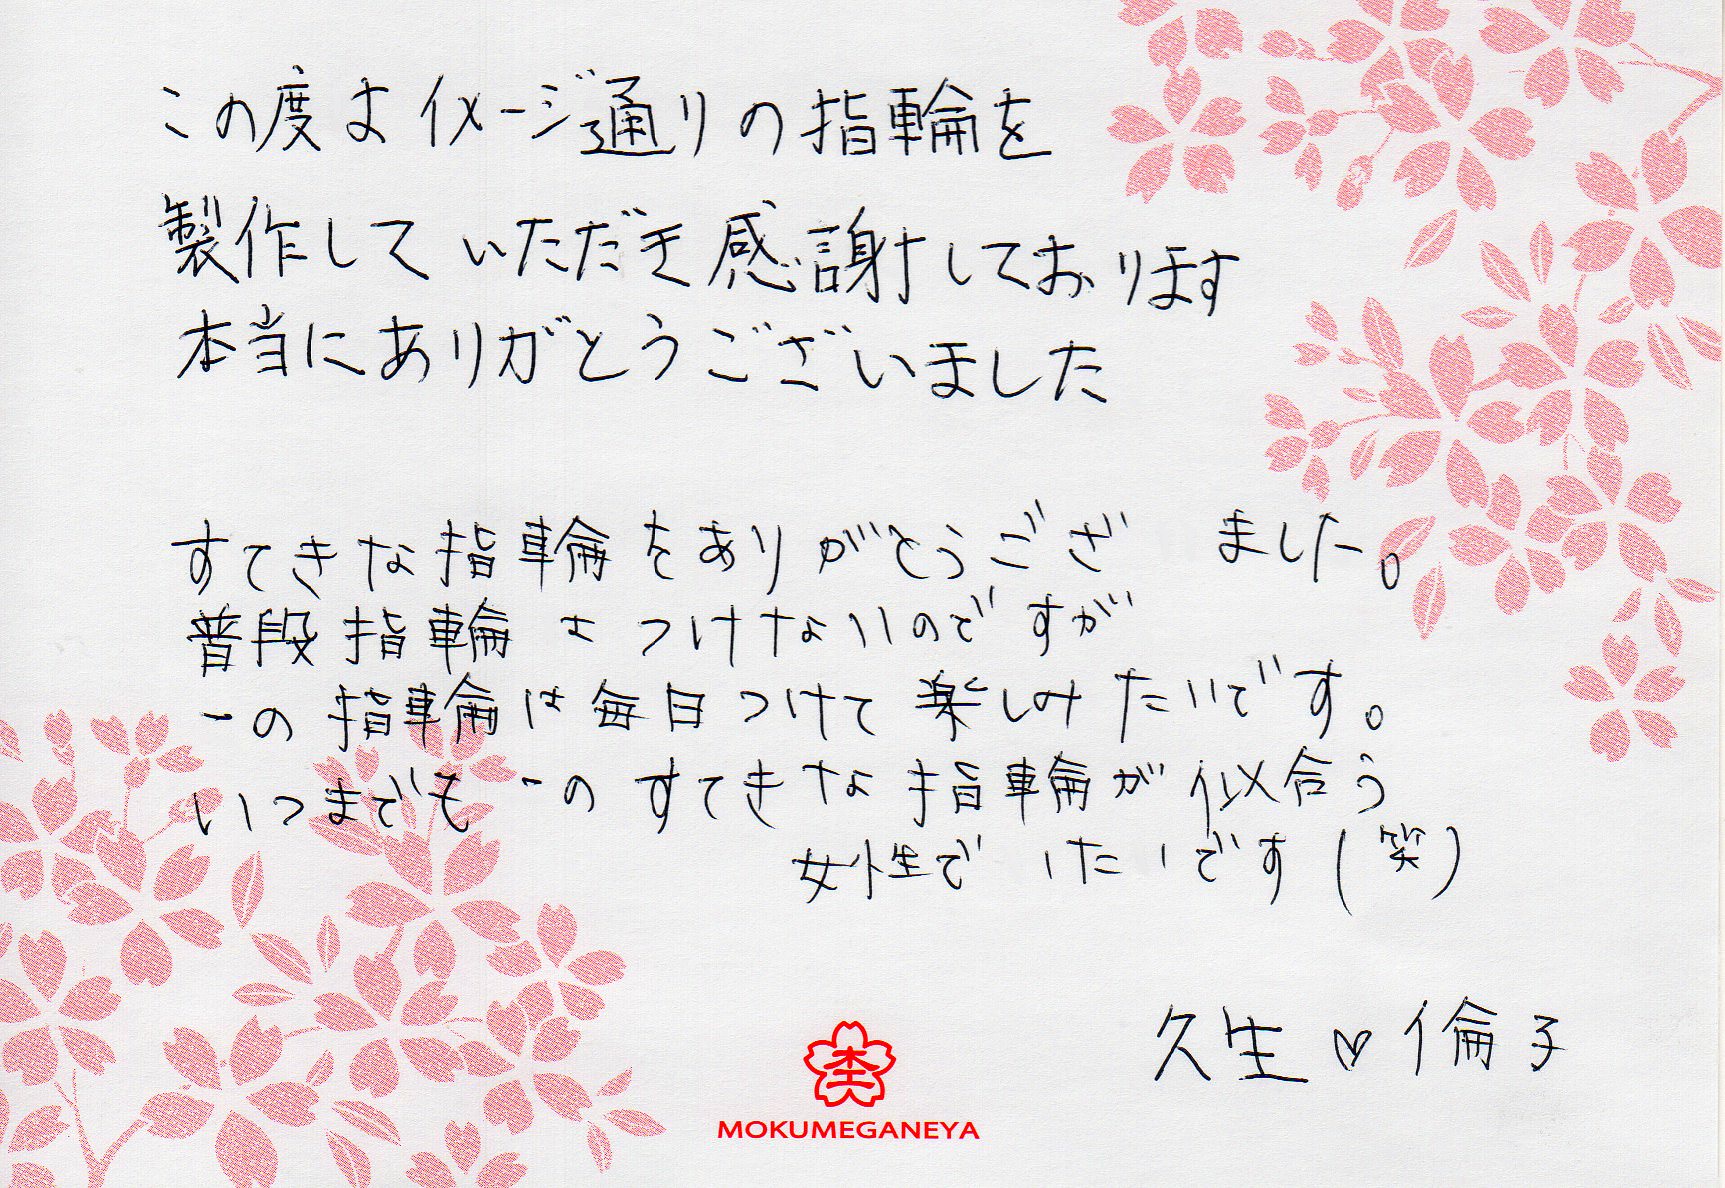 この度はイメージ通りの指輪を
製作していただき感謝しております
本当にありがとうございました
すてきな指輪をありがとうござ ました。
普段指輪はつけないのですが
この指輪は毎日つけて楽しみたいです。
いつまでもこのすてきな指輪が似合う
女性でいたいです(笑)
久生♡倫子
MOKUMEGANEYA